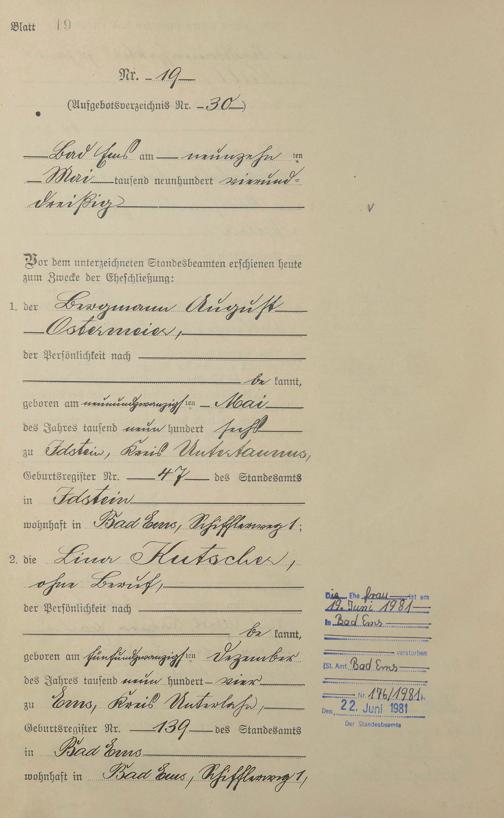 Blatt 19
Nr. 19
(Aufgebotsverzeichnis Nr. 30)
Bad Ems am neunzehn ten
Mai tausend neunhundert vierund-
dreißig
Vor dem unterzeichneten Standesbeamten erschienen heute
zum Zwecke der Eheschließung:
1. der Bergmann August
Ostermeier,
der Persönlichkeit nach
be kannt,
geboren am neunundzwanzigsten Mai
des Jahres tausend neun hundert sechs
zu Idstein, Kreis Untertaunus,
Geburtsregister Nr. 47 des Standesamts
in Idstein
wohnhaft in Bad Ems, Schifflerweg 1;
2. die Lina Kutscher,
ohne Beruf,
der Persönlichkeit nach
be kannt,
geboren am fünfundzwanzigsten Dezember
des Jahres tausend neun hundert vier
zu Ems, Kreis Unterlahn,
Geburtsregister Nr. 139 des Standesamts
in Bad Ems
wohnhaft in Bad Ems, Schifflerweg 1,
Die Ehe frau ist am
19. Juni 1981
in Bad Ems
verstorben
(St. Amt Bad Ems
Nr. 176/1981).
Den 22. Juni 1981
Der Standesbeamte